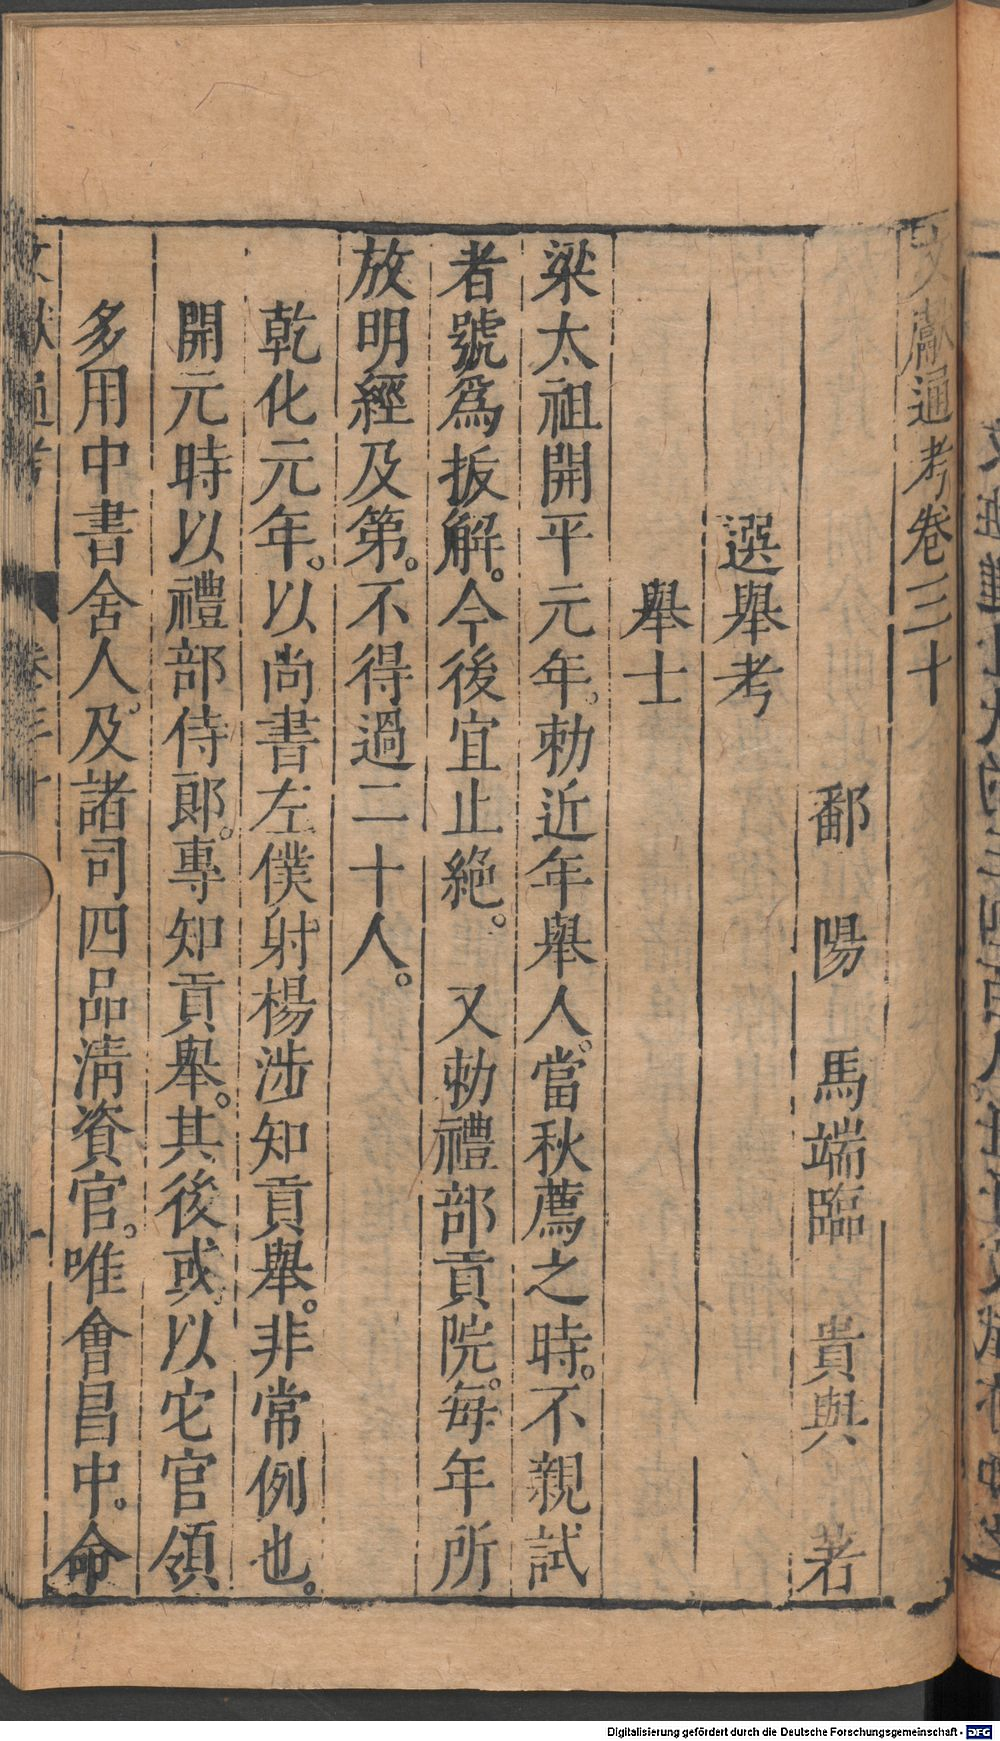 文獻通考卷三十
鄱陽 馬端臨 貴與 著
選舉考
舉士
梁太祖開平元年。勑近年舉人。當秋薦之時。不親試
者號爲拔解。今後宜止絕。 又勑禮部貢院。每年所
放明經及第。不得過二十人。
乾化元年。以尚書左僕射楊涉知貢舉。非常例也。
開元時以禮部侍郎。專知貢舉。其後或以它官領
多用中書舍人。及諸司四品清資官。唯會昌中。命
Digitalisierung gefördert durch die Deutsche Forschungsgemeinschaft - DFG